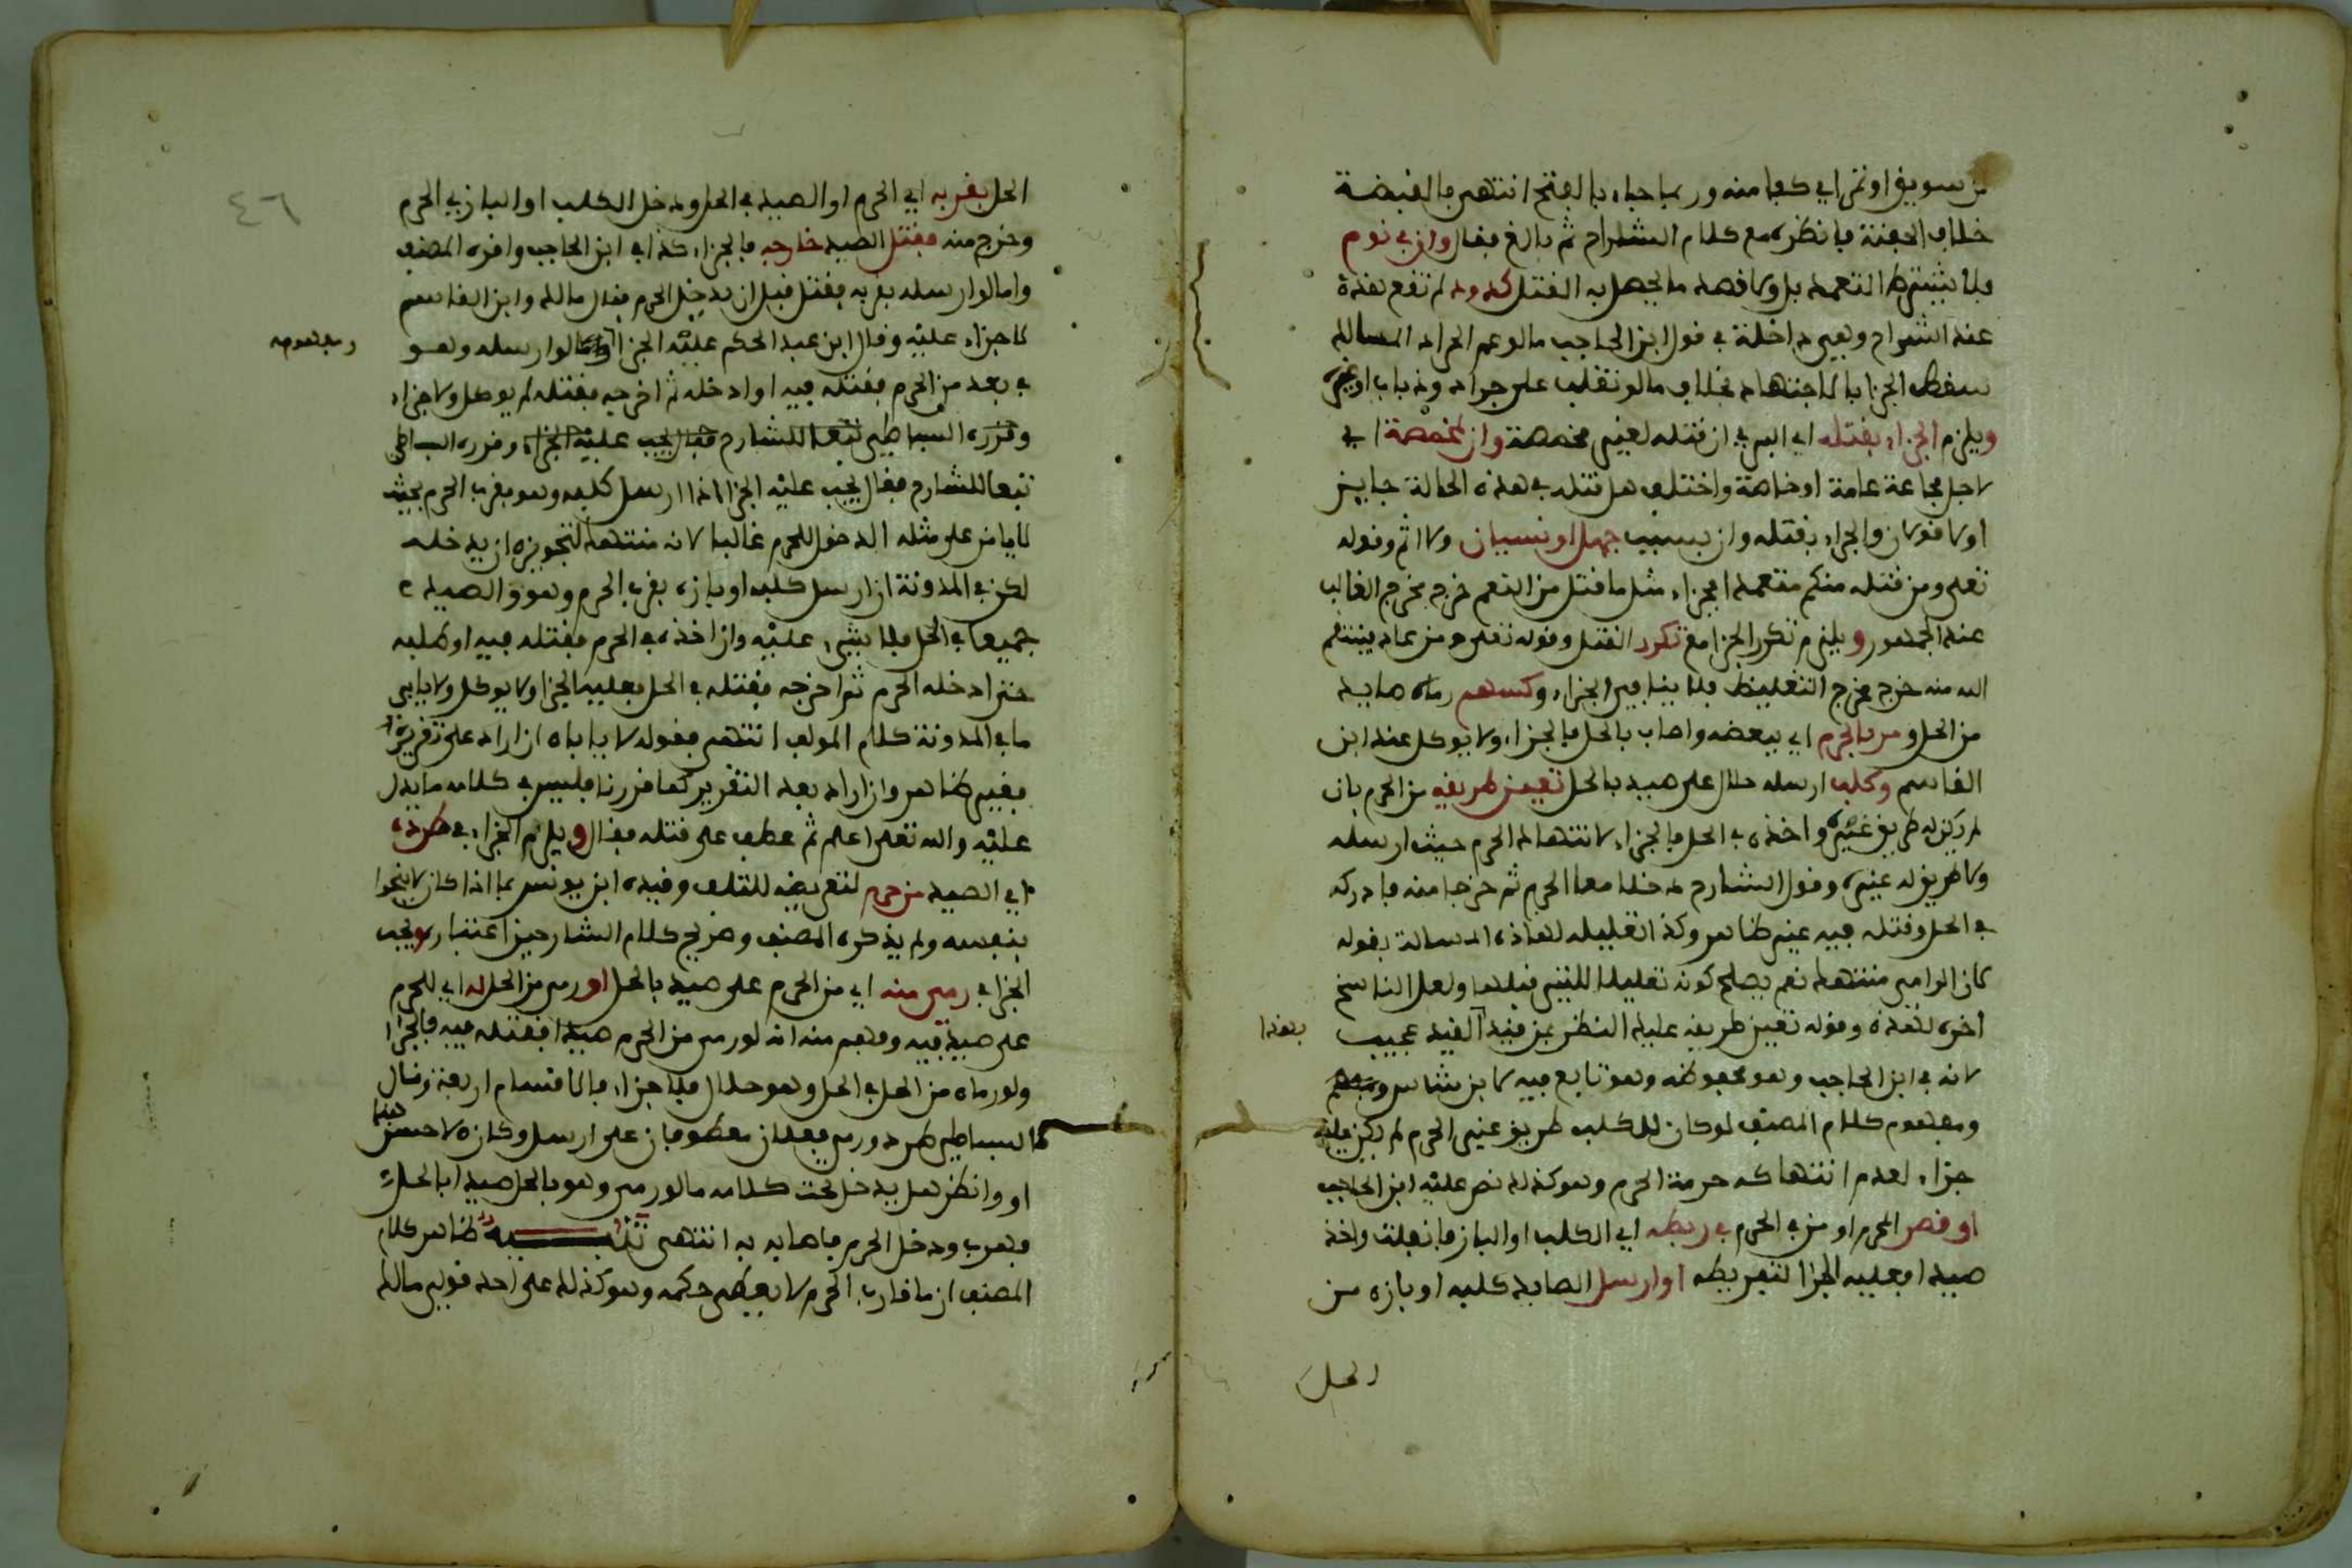 من سويق او تمر اي كفا منه وربما جاء بالفتح انتهى فالقبضة
خلاف الحفنة فانظره مع كلام الشراح ثم بالغ فقال وان في نوم
فلا يشترط التعمد بل ولا قصد ما يحصل به القتل كدود لم تقع هذه
عند الشراح وهي داخلة في قول ابن الحاجب ما لو عم الجراد المسالك
سقط الجزا بالاجتهاد بخلاف ما لو تقلب على جراد وذباب او غيره
ويلزم الجزاء بقتله اي البري ان قتله لغير مخمصة وان لمخمصة اي
لاجل مجاعة عامة او خاصة واختلف هل قتله في هذه الحالة جايز
او لا قولان والجزاء بقتله وان بسبب جهل او نسيان ولا اثم وقوله
تعلى ومن قتله منكم متعمدا فجزاء مثل ما قتل من النعم خرج مخرج الغالب
عند الجمهور ويلزم تكرر الجزا مع تكرر القتل وقوله تعلى ومن عاد فينتقم
الله منه خرج مخرج التغليظ فلا ينافي الجزاء وكسهم رماه صايد
من الحل ومر بالحرم اي ببعضه واصاب بالحل فالجزاء ولا يوكل عند ابن
القاسم وكلب ارسله حلال على صيد بالحل تعين طريقه من الحرم بان
لم يكن له طريق غيره واخذه في الحل فالجزاء لانتهاك الحرم حيث ارسله
ولا طريق له غيره وقول الشارح دخلا معا الحرم ثم خرجا منه فادركه
في الحل وقتله فيه غير ظاهر وكذا تعليله لهاذه المسالة بقوله
لان الرامي منتهك نعم يصلح كونه تعليلا للتي قبلها ولعل الناسخ
اخره لهذه وقوله تعين طريقه عليه النظر بمن قيد القيد عجيب
بهذا
لانه في ابن الحاجب وهو محفوظه وهو تابع فيه لابن شاس
ومفهوم كلام المصنف لو كان للكلب طريق غير الحرم لم يكن عليه
جزاء لعدم انتهاكه حرمة الحرم وهو كذلك نص عليه ابن الحاجب
او قصر المحرم او من في الحرم في ربطه اي الكلب او الباز فانفلت واخذ
صيدا فعليه الجزا لتفريطه او ارسل الصايد كلبه او بازه من
الحل
٤٦
الحل بقربه اي الحرم او الصيد في الحل ودخل الكلب او الباز في الحرم
وخرج منه فقتل الصيد خارجه فالجزاء كذا في ابن الحاجب واقره المصنف
واما لو ارسله بقربه فقتل قبل ان يدخل الحرم فقال مالك وابن القاسم
لا جزاء عليه وقال ابن عبد الحكم عليه الجزا واما لو ارسله وهو
ومفهومه
في بعد من الحرم فقتله فيه او ادخله ثم اخرجه فقتله لم يوكل ولا جزاء
وقرره البساطي تبعا للشارح فقال يجب عليه الجزاء وقرره البساطي
تبعا للشارح فقال يجب عليه الجزا اذا ارسل كلبه وهو بقرب الحرم بحيث
لا يامن على مثله الدخول للحرم غالبا لانه منتهك لتجويزه ان يدخله
لكن في المدونة ان ارسل كلبه او بازه بقرب الحرم وهو والصيد
جميعا في الحل فلا شيء عليه وان اخذه في الحرم فقتله فيه او طلبه
حتى ادخله الحرم ثم اخرجه فقتله في الحل فعليه الجزا ولا يوكل ولا يابى
ما في المدونة كلام المولف انتهى فقوله لا ياباه ان اراد على تقريره
فغير ظاهر وان اراد بعد التقرير كما قررنا فليس في كلامه ما يدل
عليه والله تعلى اعلم ثم عطف على قتله فقال ويلزم الجزاء في طرده
اي الصيد من حرم لتعريضه للتلف وقيده ابن يونس بما اذا كان لا ينجوا
بنفسه ولم يذكره المصنف وصريح كلام الشارحين اعتباره ويجب
الجزا في رمي منه اي من الحرم على صيد بالحل او رمي من الحل له اي للحرم
على صيد فيه وفهم منه انه لو رمى من الحرم صيدا فقتله فيه فالجزا
ولو رماه من الحل في الحل وهو حلال فلا جزاء فالاقسام اربعة وقال
البساطي طرد ورمي فعلان معطوفان على ارسل وكانه لاحظ هنا
او وانظر هل يدخل تحت كلامه ما لو رمى وهو بالحل صيدا بالحل
فهرب ودخل الحرم فاصابه به انتهى تنبيه ظاهر كلام
المصنف ان ما قارب الحرم لا يعطى حكمه وهو كذلك على احد قولي مالك